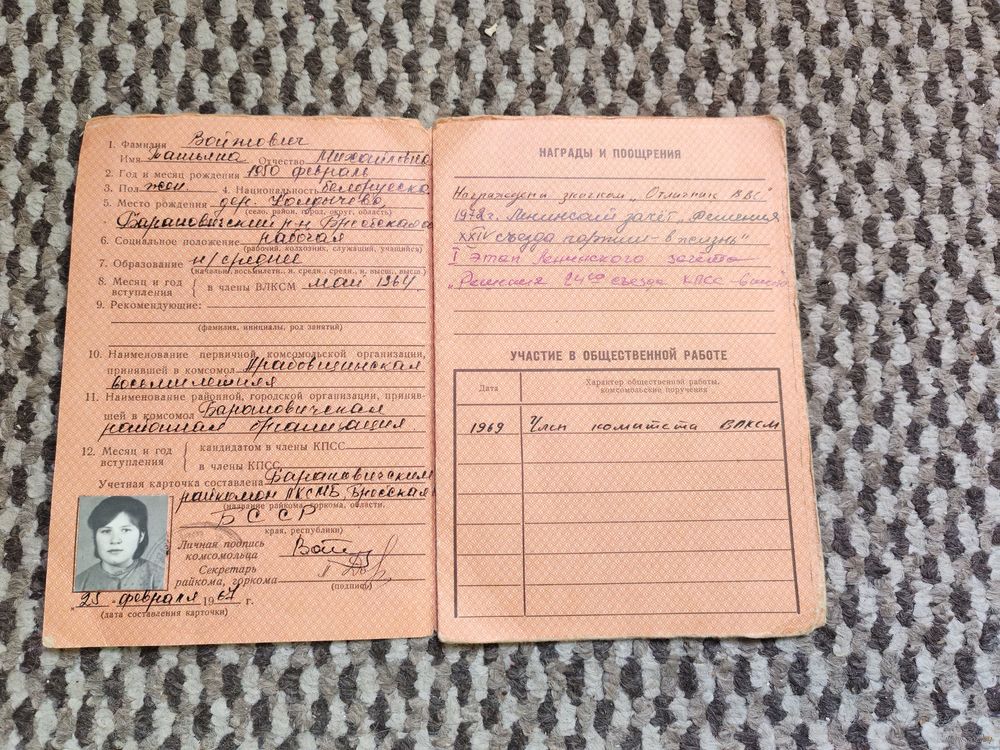 1. Фамилия Войтович
Имя Татьяна Отчество Михайловна
2. Год и месяц рождения 1950 февраль
3. Пол жен 4. Национальность белорусска
5. Место рождения дер. Колдычево,
(село, район, город, округ, область)
Барановичский р-н Брестская об
6. Социальное положение рабочая
(рабочий, колхозник, служащий, учащийся)
7. Образование н/среднее
(начальн., восьмилетн., н. средн., средн., н. высш., высш.)
8. Месяц и год вступления в члены ВЛКСМ май 1964
9. Рекомендующие:
(фамилия, инициалы, род занятий)
10. Наименование первичной комсомольской организации,
принявшей в комсомол
восьмилетняя
11. Наименование районной, городской организации, приняв-
шей в комсомол Барановичская
районная организация
12. Месяц и год вступления
кандидатом в члены КПСС
в члены КПСС
Учетная карточка составлена Барановичским
райкомом ЛКСМБ, Брестская
(название райкома, горкома, области,
БССР
края, республики)
Личная подпись
комсомольца Вой
Секретарь
райкома, горкома
(подпись)
"25" февраля 1967 г.
(дата составления карточки)
НАГРАДЫ И ПООЩРЕНИЯ
Награждена значком „Отличник
1972г. Ленинский зачёт „Решения
XXIV съезда партии - в жизнь"
I этап Ленинского зачета
„Решения 24го съезда КПСС - в жизнь
УЧАСТИЕ В ОБЩЕСТВЕННОЙ РАБОТЕ
Дата
Характер общественной работы,
комсомольские поручения
1969 Член комитета ВЛКСМ